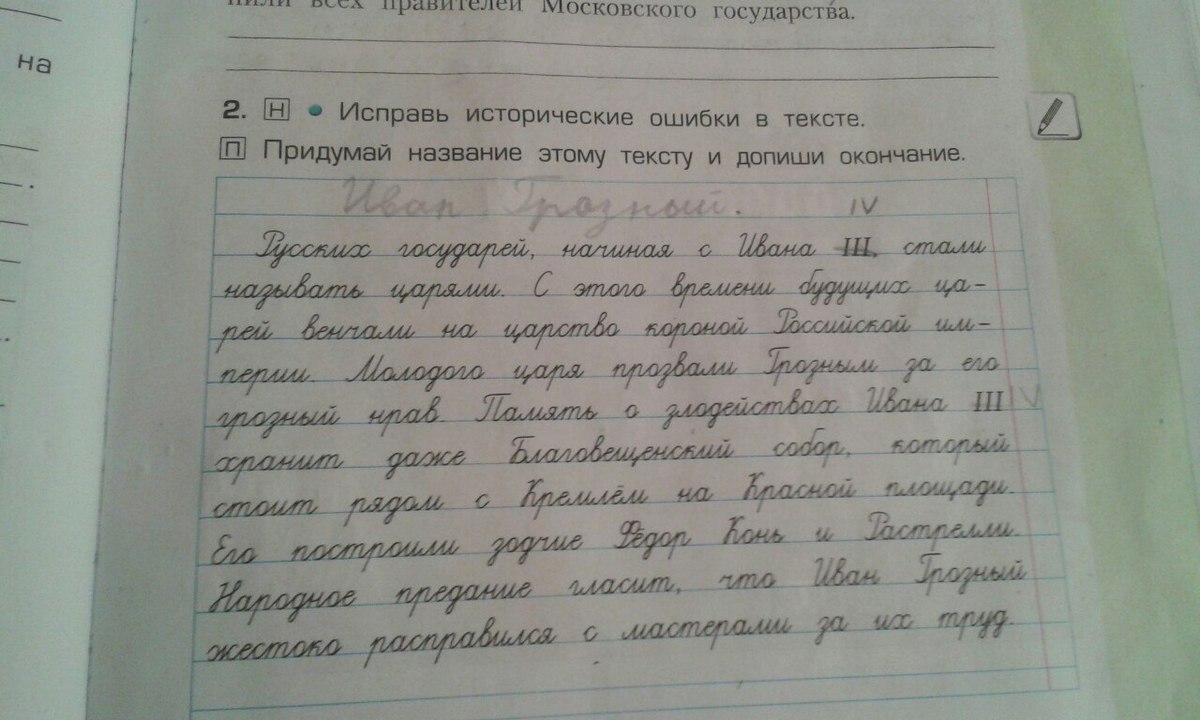 нили всех правителей Московского государства.
на
2. Н • Исправь исторические ошибки в тексте.
П Придумай название этому тексту и допиши окончание.
Иван Грозный.
IV
Русских государей, начиная с Ивана III, стали
называть царями. С этого времени будущих ца-
рей венчали на царство короной Российской им-
перии. Молодого царя прозвали Грозным за его
грозный нрав. Память о злодействах Ивана III IV
хранит даже Благовещенский собор, который
стоит рядом с Кремлём на Красной площади.
Его построили зодчие Фёдор Конь и Растрелли.
Народное предание гласит, что Иван Грозный
жестоко расправился с мастерами за их труд.